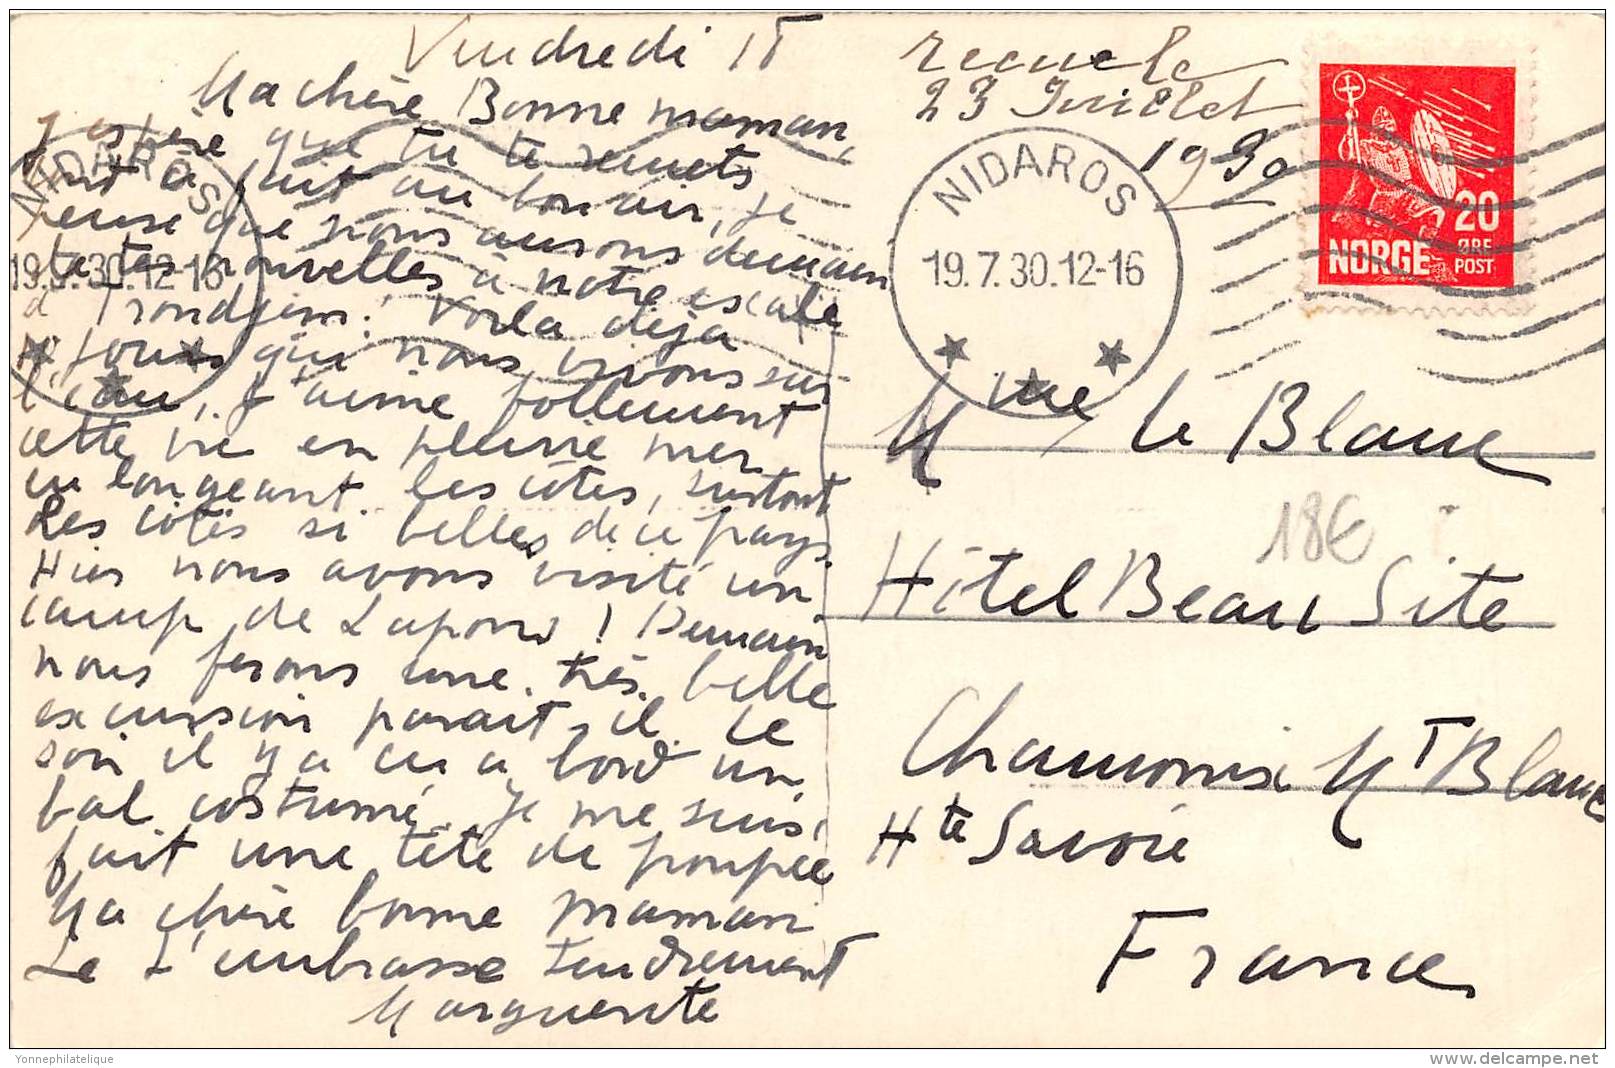 Vendredi
Ma chère Bonne maman,
J'espère que tu te remets
tout à fait au bon air, je
pense que nous aurons demain
de tes nouvelles à notre escale
à Trondjem! Voila déjà
jours que nous vivons sur
l'eau, J'aime follement
cette vie en pleine mer
en longeant les côtes, surtout
les côtes si belles de ce pays.
Hier nous avons visité un
camp de Lapons! Demain
nous ferons une très belle
excursion parait-il. Ce
soir il y a eu a bord un
bal costumé. Je me suis
fait une tête de poupée
Ma chère bonne maman
Je t'embrasse tendrement
Marguerite
recue le
23 Juillet
1930
NIDAROS
19.7.30.12-16
NIDAROS
19.7.30.12-16
20
NORGE ØRE
POST
Mme Le Blanc
18€
Hôtel Beau Site
Chamonix Mt Blanc
Hte Savoie
France
Yonnephilatelique
delcampe.net